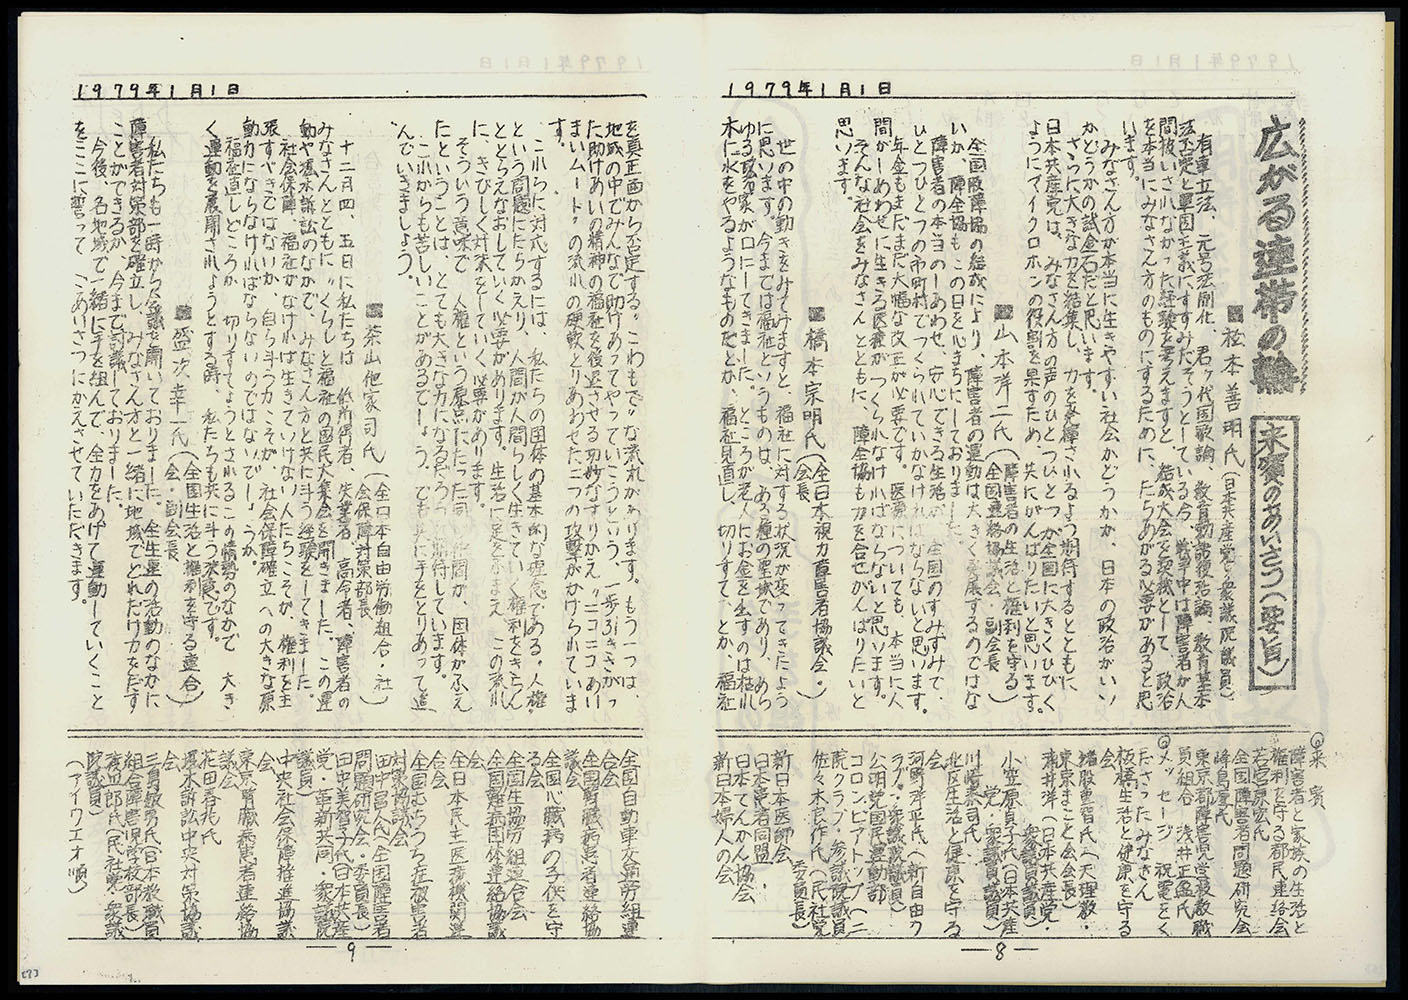 1979年1月1日
広がる連帯の輪
来賓のあいさつ(要旨)
■松本善明氏(日本共産党・衆議院議員)
有事立法、元号法制化、君ヶ代国歌論、教育勅語復活論、教育基本
法否定と軍国主義にすすみだそうとしている今、戦争中は障害者が人
間扱いされなかった経験を考えますと、結成大会を契機として、政治
を本当にみなさん方のものにするために、たちあがる必要があると思
います。
みなさん方が本当に生きやすい社会かどうかが、日本の政治がいい
かどうかの試金石だと思います。
さらに大きな力を結集し、力を発揮されるよう期待するとともに
日本共産党は、みなさん方の声のひとつひとつが全国に大きくひびく
ようにマイクロホンの役割を果すため、共にがんばりたいと思います。
■山本洋二氏(障害者の生活と権利を守る
全国連絡協議会・副会長)
全国脈障協の結成により、障害者の運動は大きく発展するのではな
いか、障全協もこの日を心まちにしておりました。
障害者の本当のしあわせ、安心できる生活が、全国のすみずみで
ひとつひとつの市町村でつくられていかなければならないと思います。
年金もまだまだ大幅な改正が必要です。医療についても、本当に人
間がしあわせに生きる医療がつくられなければならないと思います。
そんな社会をみなさんとともに、障全協も力を合せがんばりたいと
思います。
■橋本宗明氏(全日本視力障害者協議会・
会長)
世の中の動きをみてみますと、福祉に対する状況が変ってきたよう
に思います。今までは福祉というものは、ある種の聖域であり、あら
ゆる政治家が口にしてきました。ところが老人にお金を出すのは枯れ
木に水をやるようなものだとか、福祉見直し、切りすて、とか、福祉
◎来賓
障害者と家族の生活と
権利を守る都民連絡会
若宮京宏氏
全国障害者問題研究会
峰島厚氏
東京都障害児学校教職
員組合 浅井正盛氏
◎メッセージ、祝電をく
ださったみなさん
板橋生活と健康を守る
会
猪股重智氏(天理教・
東京まこと会会長)
薄井洋(日本共産党・
衆議員議員)
小笠原貞子氏(日本共産
党・参議員議員)
川崎泰司氏
北区生活と健康を守る
会
河野洋平氏(新自由ク
ラブ・衆議院議員)
公明党国民運動部
コロンビアトップ(二
院クラブ・参議院議員
佐々木良作氏(民社党
委員長)
新日本医師会
日本患者同盟
日本てんかん協会
新日本婦人の会
―8―
1979年1月1日
を真正面から否定する。こわもて〟な流れがあります。もう一つは、
地域の中でみんなで助けあってやっていこうという、一歩ふきさがっ
た助けあいの精神の福祉を後退させる巧妙なすりかえ〟ニコニコあい
まいムード〟の流れの硬軟とりあわせた二つの攻撃がかけられていま
す。
これらに対応するには、私たちの団体の基本的な理念である。人権・
という問題にたちかえり、人間が人間らしく生きていく権利をきちん
ととらえなおしていく必要があります。生活に足をふまえ、この流れ
に、きびしく対決をしていく必要があります。
そういう意味で、人権という原点にたった同じ仲間が、団体がふえ
たということは、とても大きな力になるだろうと期待しています。
これからも苦しいことがあるでしょう。でも共に手をとりあって進
んでいきましょう。
■茶山他家司氏(全日本自由労働組合・社
会保障対策部長)
十二月四、五日に私たちは、低所得者、失業者、高令者、障害者の
みなさんとともに〟くらしと福祉の国民大集会を開きました。この運
動や堀木訴訟のなかで、みなさん方と共に斗う経験をしてきました。
社会保障、福祉がなければ生きていけない人たちこそが、権利を主
張すべきではないか、自ら斗う力こそが、社会保障確立への大きな原
動力にならなければならないのではないでしょうか。
福祉見直しどころか、切りすてようとされるこの情勢のなかで、大き
く運動を展開されようとする時、私たちも共に斗う決意です。
■盛次幸一氏(全国生活と権利を守る連合
会・副会長)
私たちも一時から会議を開いておりました。全生連の活動のなかに
障害者対策部を確立し、みなさん方と一緒に地域でどれだけ力をだす
ことができるか、今まで討議しておりました。
今後、各地域で一緒に手を組んで、全力をあげて運動していくこと
をここに誓って、ごあいさつにかえさせていただきます。
全国自動車交通労組連
合会
全国腎臓病患者連絡協
議会
全国心臓病の子供を守
る会
全国生協労組連合会
全国難病団体連絡協議
会
全日本民主医療機関連
合会
全国むちうち症被害者
対策協議会
田中昌人氏(全国障害者
問題研究会・委員長)
田中美智子氏(日本共産
党・革新共同・衆議院
議員)
中央社会保障推進協議
会
東京腎臓病患者連絡協
議会
花田春兆氏
堀木訴訟中央対策協議
会
三宮敏男氏(日本教職員
組合障害児学校部長)
(民社党・衆議
院議員)
(アイウエオ順)
―9―